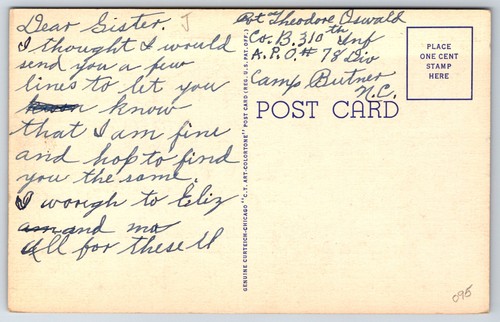 Dear Sister. J
I thought I would
send you a few
lines to let you
know
that I am fine
and hop to find
you the same.
I wough to Eliz
and mo
all for these
Pvt Theodore Oswald
Co. B. 310th Inf
A.P.O.# 78 Div
Camp Butner
N.C.
POST CARD
PLACE
ONE CENT
STAMP
HERE
GENUINE CURTEICH-CHICAGO "C.T. ART-COLORTONE" POST CARD (REG. U.S. PAT. OFF.)
095